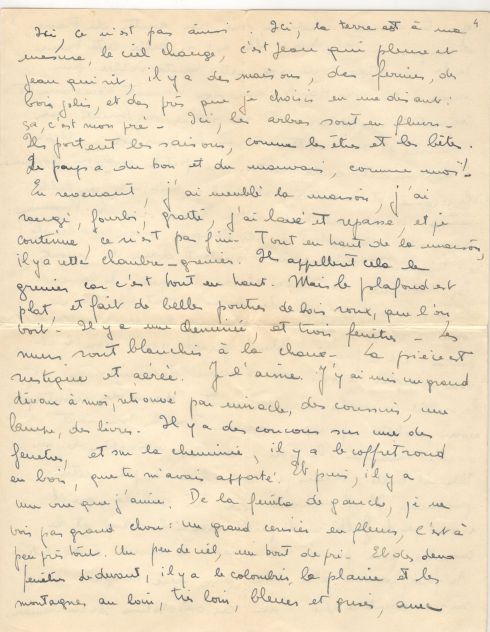 4
Ici, ce n'est pas ainsi. Ici, la terre est à ma
mesure, le ciel change, c'est Jean qui pleure et
Jean qui rit, il y a des maisons, des fermes, des
bois jolis, et des prés que je choisis en me disant :
ça, c'est mon pré - Ici, les arbres sont en fleurs -
Ils portent les saisons, comme les êtres et les bêtes.
Le pays a du bon et du mauvais, comme moi !
En revenant, j'ai meublé la maison, j'ai
rangé, fourbi, gratté, j'ai lavé et repassé, et je
continue, ce n'est pas fini. Tout en haut de la maison,
il y a cette chambre-grenier. Ils appellent cela le
grenier car c'est tout en haut. Mais le plafond est
plat, et fait de belles poutres de bois roux, que l'on
voit - Il y a une cheminée, et trois fenêtres - les
murs sont blanchis à la chaux - La pièce est
rustique et aérée. Je l'aime. J'y ai mis un grand
divan à moi, retrouvé par miracle, des coussins, une
lampe, des livres. Il y a des coucous sur une des
fenêtres, et sur la cheminée, il y a le coffret rond
en bois, que tu m'avais apporté. Et puis, il y a
une vue que j'aime. De la fenêtre de gauche, je ne
vois pas grand chose : un grand cerisier en fleurs, c'est à
peu près tout. Un peu de ciel, un bout de pré - Et des deux
fenêtres de devant, il y a le colombier, la plaine et les
montagnes au loin, très loin, bleues et grises, avec